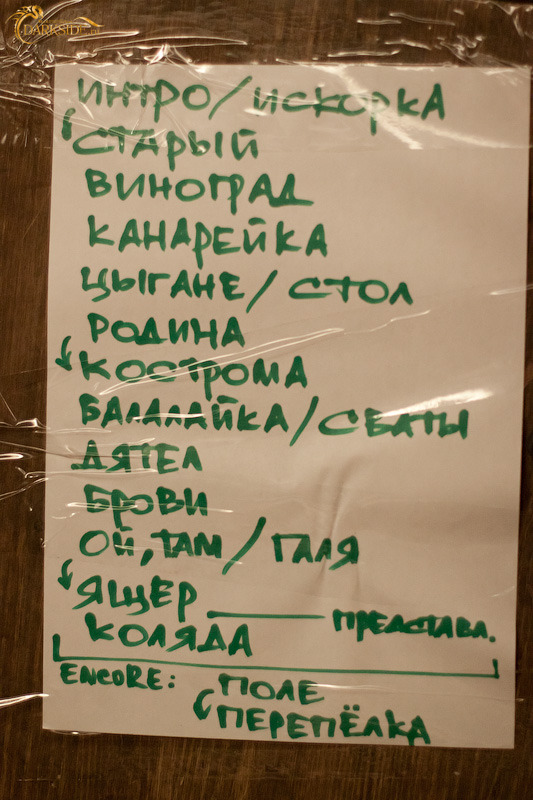 DARKSIDE.RU
ИНТРО/ИСКОРКА
СТАРЫЙ
ВИНОГРАД
КАНАРЕЙКА
ЦЫГАНЕ/СТОЛ
РОДИНА
КОСТРОМА
БАЛАЛАЙКА/СВАТЫ
ДЯТЕЛ
БРОВИ
ОЙ, ТАМ/ГАЛЯ
ЯЩЕР ПРЕДСТАВЛ.
КОЛЯДА
ENCORE: ПОЛЕ
ПЕРЕПЁЛКА